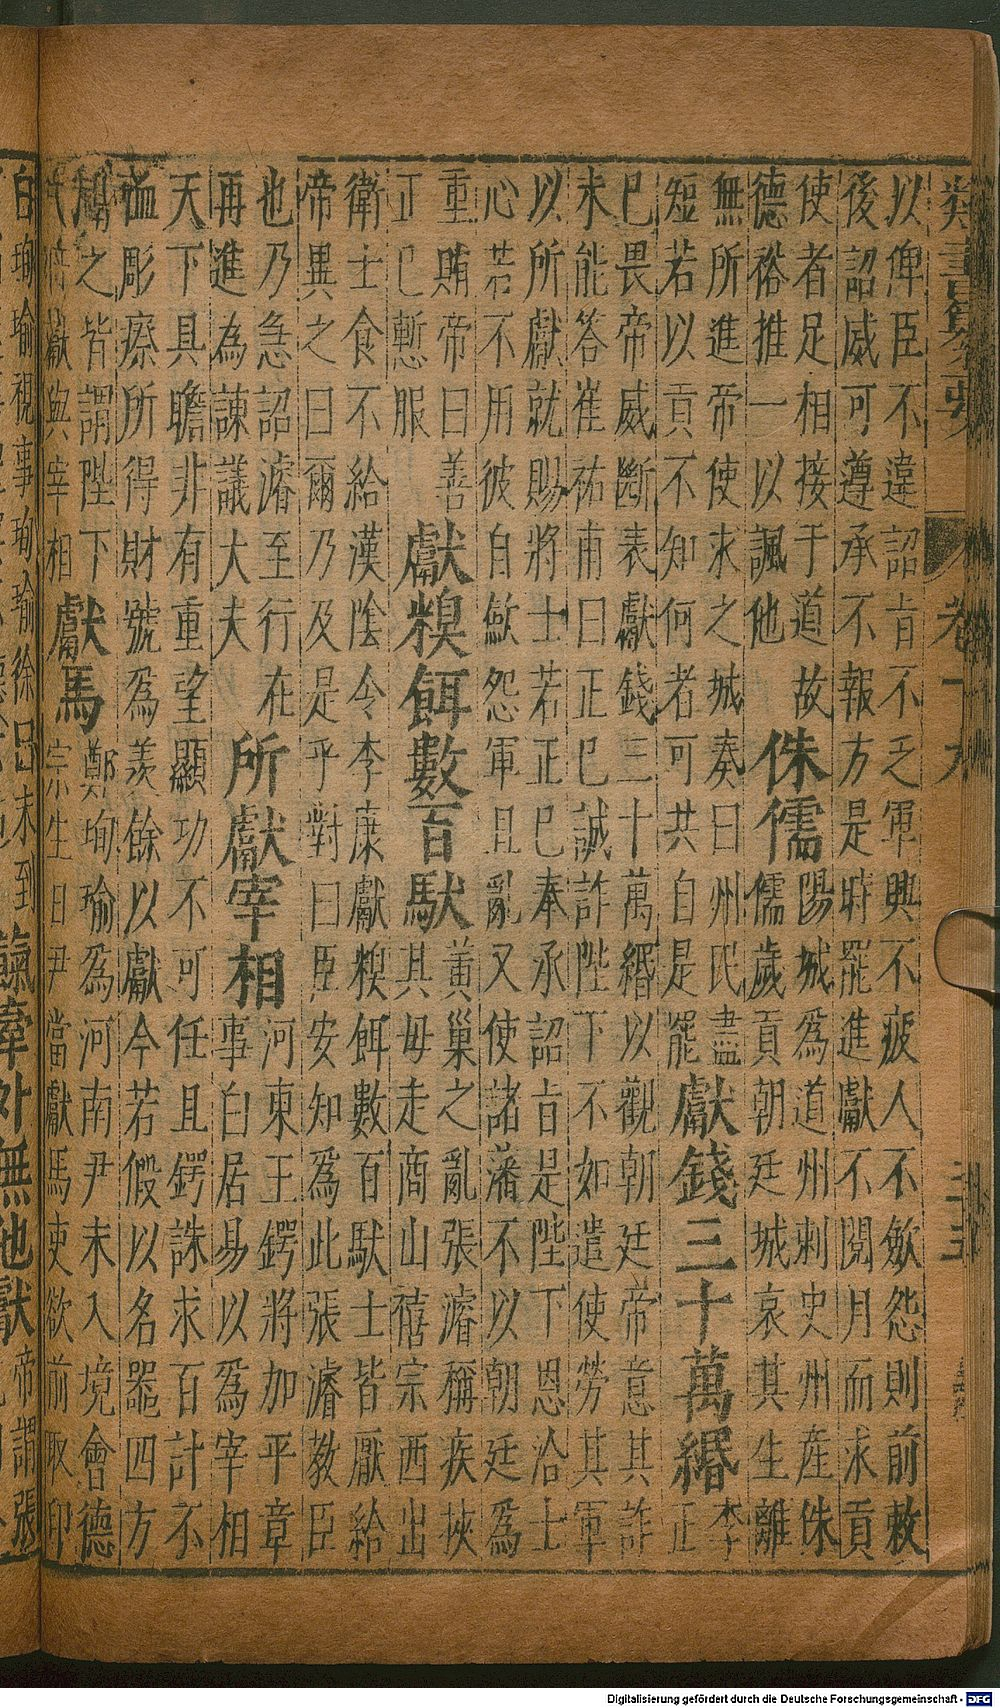 類書纂要
以俾臣不違詔旨不乏軍興不疲人不斂怨則前敕
後詔咸可遵承不報方是時罷進獻不閱月而求貢
使者足相接于道故
德裕推一以諷他
侏儒
陽城為道州刺史州產侏
儒歲貢朝廷城哀其生離
無所進帝使求之城奏曰州民盡
短若以貢不知何者可共自是罷
獻錢三十萬緡
李
正
已畏帝威斷表獻錢三十萬緡以觀朝廷帝意其詐
未能答崔祐甫曰正已誠詐陛下不如遣使勞其軍
以所獻就賜將士若正已奉承詔旨是陛下恩洽士
心若不用彼自斂怨軍且亂又使諸藩不以朝廷為
重賄帝曰善
正已慙服
獻糗餌數百馱
黃巢之亂張濬稱疾挾
其毋走商山僖宗西出
衛士食不給漢陰令李康獻糗餌數百馱士皆厭給
帝異之曰爾乃及是乎對曰臣安知為此張濬教臣
也乃急詔濬至行在
再進為諫議大夫
所獻宰相
河東王鍔將加平章
事白居易以為宰相
天下具瞻非有重望顯功不可任且鍔誅求百計不
䘏彫瘵所得財號為羨餘以獻今若假以名器四方
聞之皆謂陛下
獻與宰相
獻馬
鄭珣瑜為河南尹未入境會德
宗生日尹當獻馬吏欲前取印
白珣瑜視事珣瑜徐曰未到
外無他獻
帝謂張
Digitalisierung gefördert durch die Deutsche Forschungsgemeinschaft - DFG